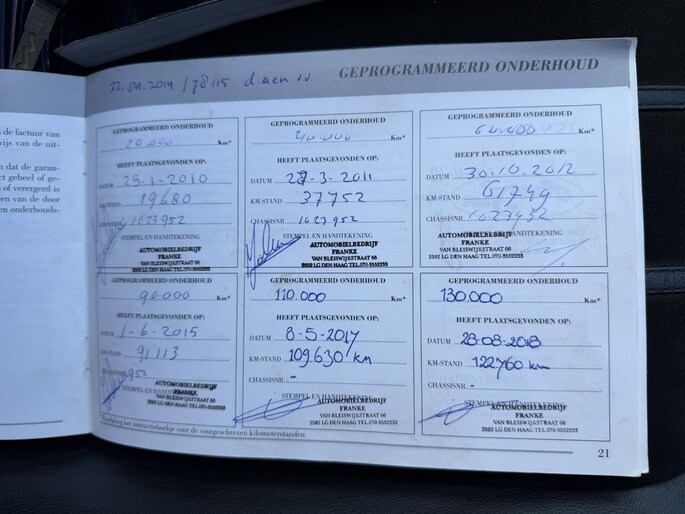 22.04.2014 / 78115
GEPROGRAMMEERD ONDERHOUD
de factuur van
wijs van de uit-
en dat de garan-
ct geheel of ge-
n of verergerd is
en van de door
en onderhouds-
GEPROGRAMMEERD ONDERHOUD
20.000 Km*
HEEFT PLAATSGEVONDEN OP:
DATUM 25-1-2010
KM-STAND 19680
CHASSISNR. 1023952
STEMPEL EN HANDTEKENING
AUTOMOBIELBEDRIJF
FRANKE
VAN BLEISWIJKSTRAAT 66
2582 LG DEN HAAG TEL.070-3552233
GEPROGRAMMEERD ONDERHOUD
40.000 Km*
HEEFT PLAATSGEVONDEN OP:
DATUM 28-3-2011
KM-STAND 37752
CHASSISNR. 1023952
STEMPEL EN HANDTEKENING
AUTOMOBIELBEDRIJF
FRANKE
VAN BLEISWIJKSTRAAT 66
2582 LG DEN HAAG TEL.070-3552233
GEPROGRAMMEERD ONDERHOUD
Km*
HEEFT PLAATSGEVONDEN OP:
DATUM 30.10.2012
KM-STAND 61749
CHASSISNR.
STEMPEL EN HANDTEKENING
AUTOMOBIELBEDRIJF
FRANKE
VAN BLEISWIJKSTRAAT 66
2582 LG DEN HAAG TEL.070-3552233
GEPROGRAMMEERD ONDERHOUD
90.000 Km*
HEEFT PLAATSGEVONDEN OP:
DATUM 1-6-2015
KM-STAND 91113
952
STEMPEL EN HANDTEKENING
AUTOMOBIELBEDRIJF
FRANKE
VAN BLEISWIJKSTRAAT 66
2582 LG DEN HAAG TEL.070-3552233
GEPROGRAMMEERD ONDERHOUD
110.000 Km*
HEEFT PLAATSGEVONDEN OP:
DATUM 8-5-2017
KM-STAND 109.630 km
CHASSISNR. -
STEMPEL EN HANDTEKENING
AUTOMOBIELBEDRIJF
FRANKE
VAN BLEISWIJKSTRAAT 66
2582 LG DEN HAAG TEL.070-3552233
GEPROGRAMMEERD ONDERHOUD
130.000 Km*
HEEFT PLAATSGEVONDEN OP:
DATUM 28-08-2018
KM-STAND 122760 km
CHASSISNR. -
STEMPEL EN HANDTEKENING
AUTOMOBIELBEDRIJF
FRANKE
VAN BLEISWIJKSTRAAT 66
2582 LG DEN HAAG TEL.070-3552233
het instructieboekje voor de voorgeschreven kilometerstanden
21